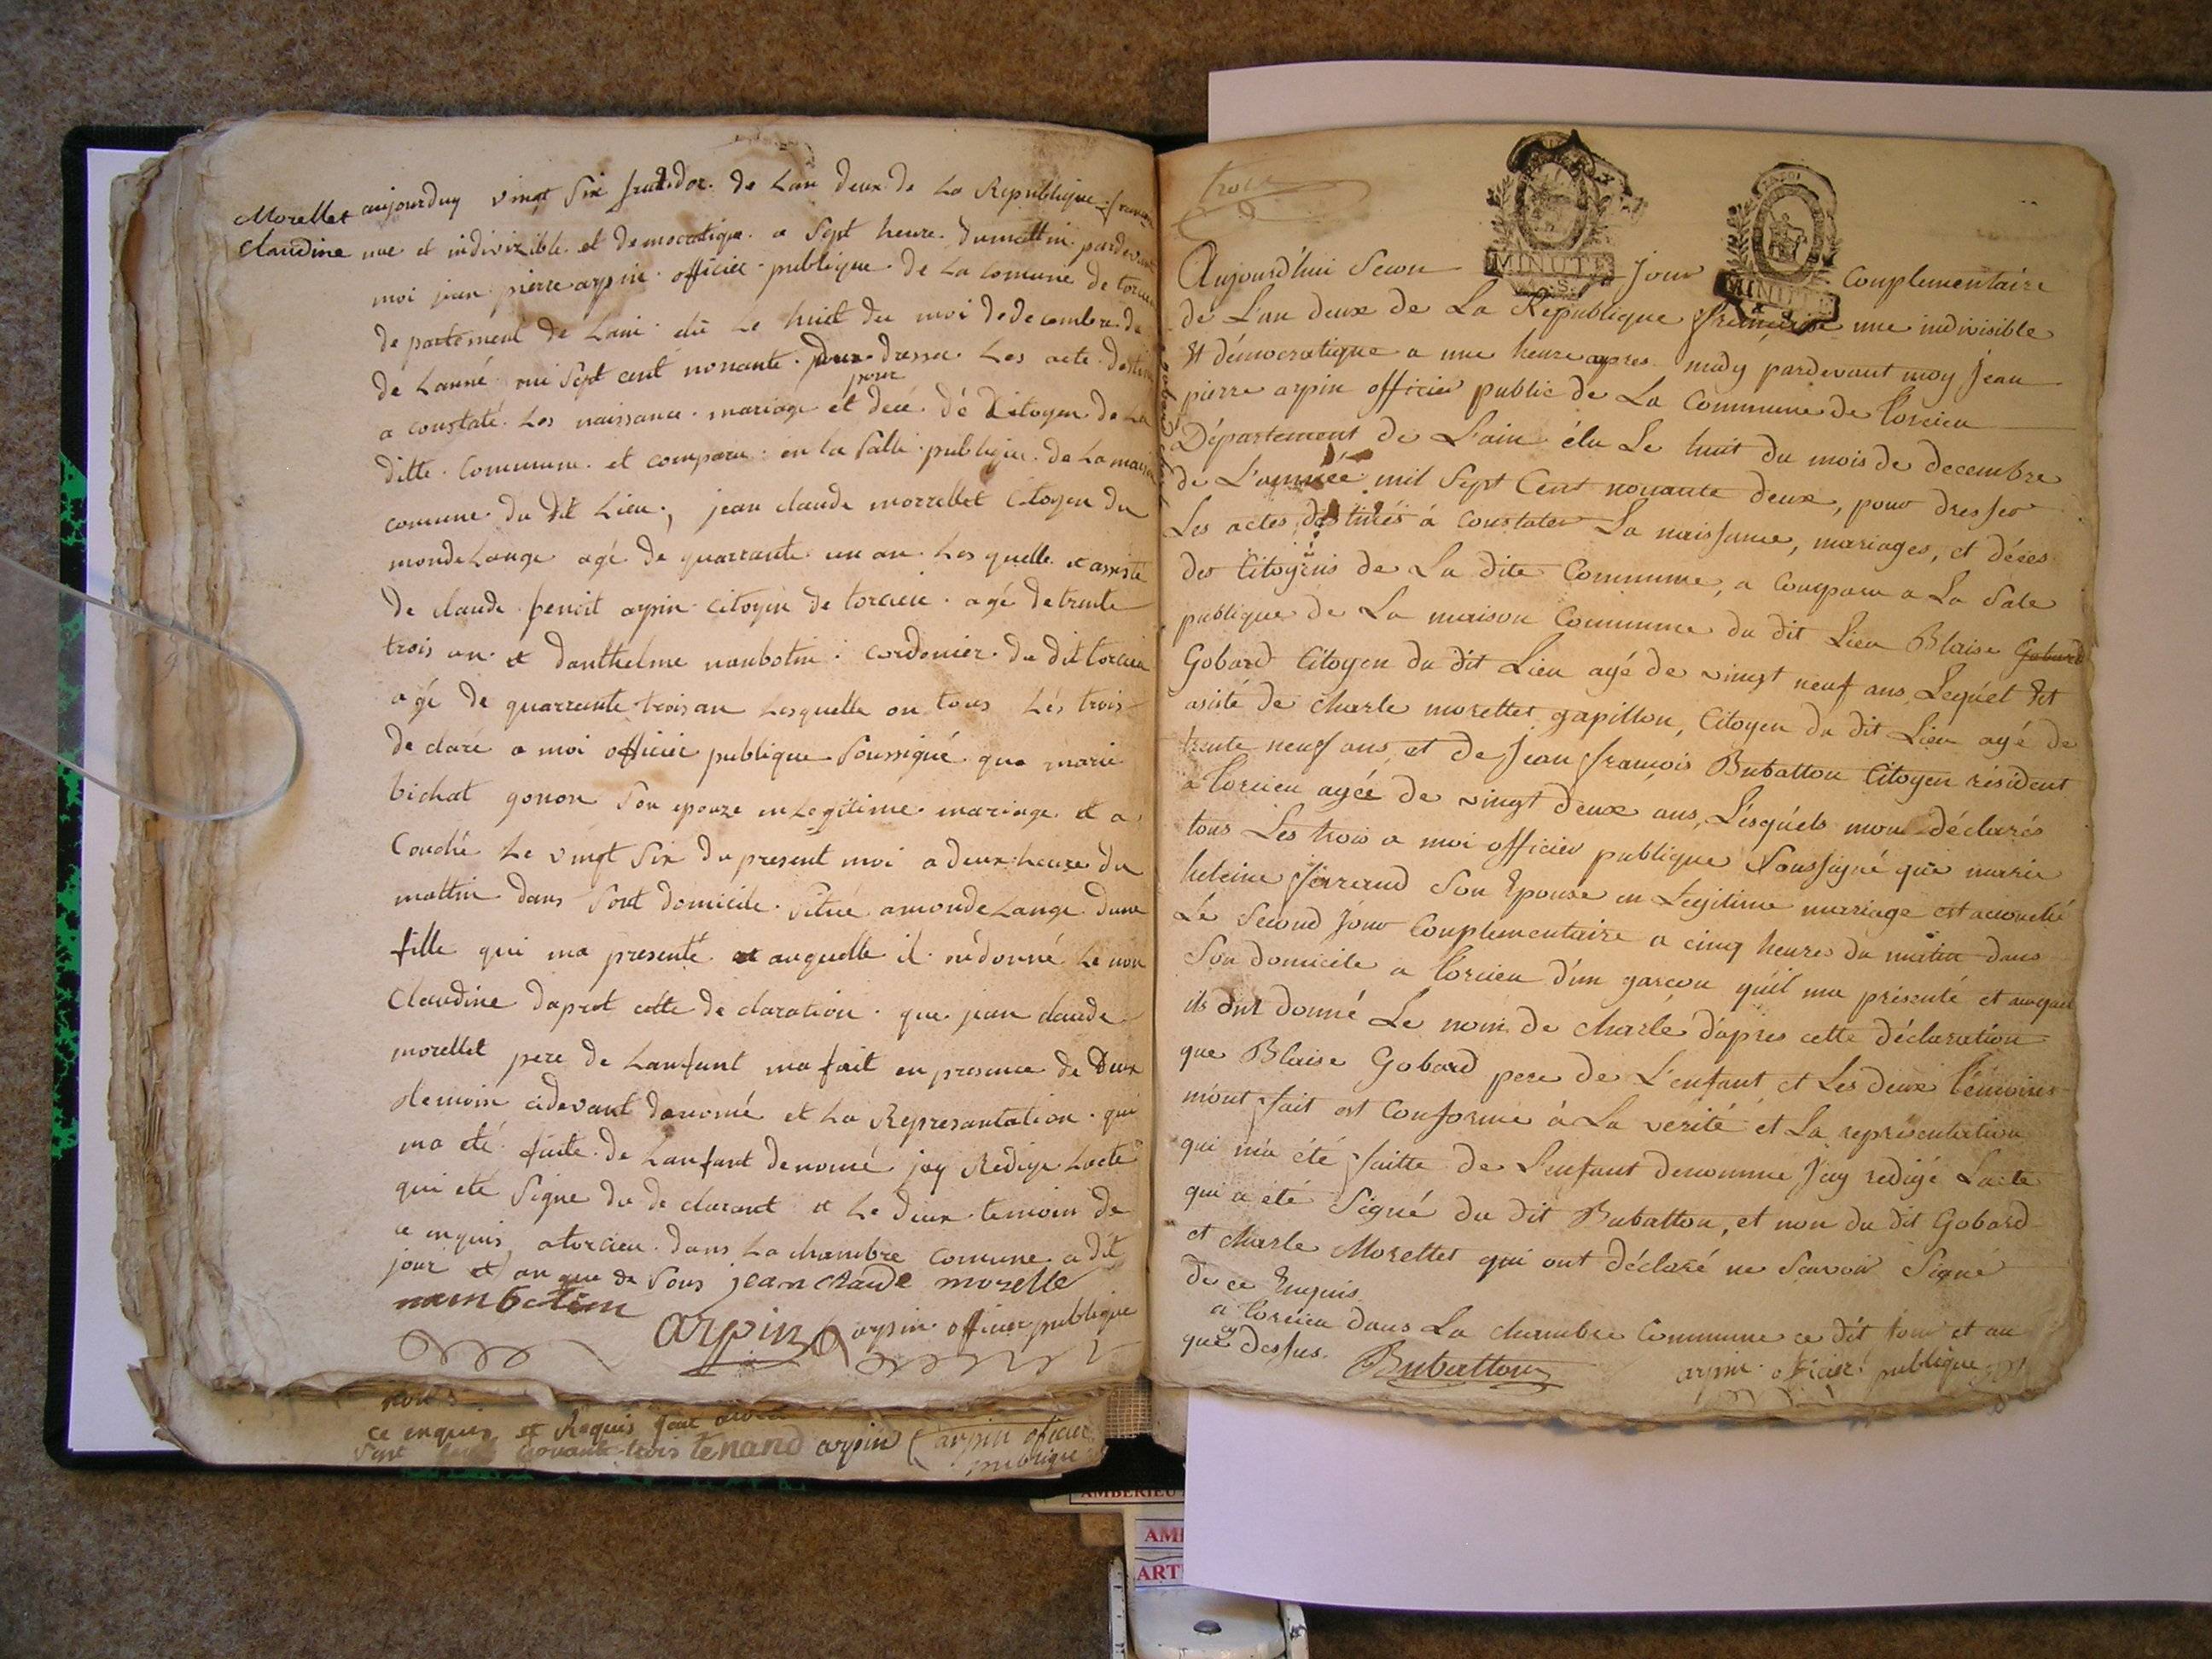 Morellet
Claudine
aujourduy vingt Six fruxdor. de Lan deux de La Republique
une et indivizible et democratique a Sept heure dumattin pardevant
moi jean pierre arpin officier publique de La comune de torcieu
departement de Lain elu Le huit du moi dedecembre de
de Lanné mi Sept cent nonante deux dresser Les acte
pour
a constaté Les naissance mariage et decé dé Citoyen de La
ditte Commune et comparu en la Salle publique de La maison
comune du dit Lieu, jean claude morrellet Citoyen du
mondeLange agé de quarrante un an Les quelle et assisté
de claude benoit arpin citoyen de torcieu agé detrente
trois an et danthelme nambotin cordonier du dit torcieu
agé de quarrente trois an Lesquelle on tous Lés trois
de claré a moi officier publique Soussigné que marie
bichat gonon Son epouze en Legitime mariage et a
Couché Le vingt Six du present moi a deux heure du
mattin dans Sont domicile Situé amondeLange dune
fille qui ma presenté et auquelle il Le non
Claudine daprest cette de claration que jean claude
morellet pere de Lanfant ma fait en presence de Deux
temoin cidevant danomé et La Represantation qui
ma eté faite de Lanfant denomé jay Redige Lacte
qui eté Signe du de clarant et Le deux temoin de
ce enquis atorcieu dans La chambre comune a dit
jour et an que de Sous jean claude morelle
nambotin
arpin arpin officier publique
ce enquis et Requis
nonante trois tenand arpin arpin oficier
publique
MINUTE
MINUTE
Aujourd'hui Secon jour Complementaire
de L'an deux de La République française une indivisible
Et démocratique a une heure apres midy pardevant moy Jean
pierre arpin officier public de La Commune de Torcieu
Département de L'ain élu Le huit du mois de decembre
de L'année mil Sept Cent nonante deux, pour dresser
Les actes destinés à constater La naissance, mariages, et décés
des Citoyens de La dite Commune, a comparu a La Sale
publique de La maison Commune du dit Lieu Blaise Gobard
Gobard Citoyen du dit Lieu agé de vingt neuf ans, Lequel Est
asisté de charle morettet gapillon, Citoyen du dit Lieu agé de
trente neuf ans, et de Jean françois Bubatton Citoyen résident
à Torcieu agée de vingt deux ans, Lésquels mon déclarés
tous Les trois a moi officier publique Soussigné que marie
heleine ferrand Son Epouse en Legitime mariage est acouché
Le Second Jour Complementaire a cinq heures du matin dans
Son domicile a Torcieu d'un garçon qu'il ma présenté et auquel
ils ont donné Le nom de charle d'apres cette déclaration
que Blaise Gobard pere de L'enfant et Les deux témoins
m'ont fait est Conforme à La verité et La représentation
qui m'a été faitte de L'enfant denomme Jay redigé Lacte
qui a été Signé du dit Bubatton, et non du dit Gobard
et charle Morettet qui ont déclaré ne Savoir Signé
de ce Enquis
a Torcieu dans La chambre Commune ce dit Jour et an
que cy dessus.
Bubatton arpin oficier publique
AMBERIEU
AM
ART